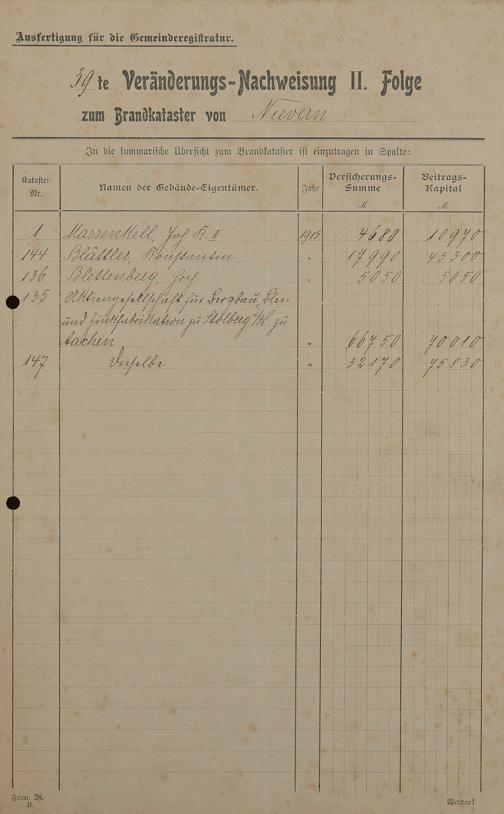 Ausfertigung für die Gemeinderegistratur.
39 te Veränderungs-Nachweisung II. Folge
zum Brandkataster von Nievern
In die summarische Übersicht zum Brandkataster ist einzutragen in Spalte:
Kataster-Nr. Namen der Gebäude-Eigentümer. Jahr Versicherungs-Summe M Beitrags-Kapital M
1 Marzenkell, Jos. K. II 1915 4680 10970
144 Blättler, Konstantin " 17990 45300
136 Blettenberg, Jos 5050 5050
135 Aktiengesellschaft für Bergbau, Blei-
und Zinkfabrikation zu Stolberg i/W. zu
Aachen " 66750 70010
147 Dieselbe " 32170 75830
Form. 38.
B.